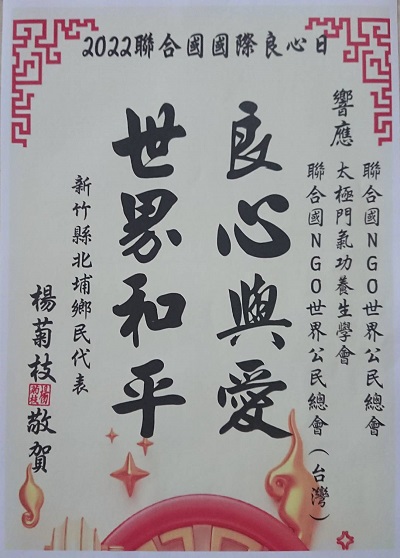 2022聯合國國際良心日
響應
聯合國NGO世界公民總會
太極門氣功養生學會
聯合國NGO世界公民總會(台灣)
良心與愛
世界和平
新竹縣北埔鄉民代表
楊菊枝 敬賀